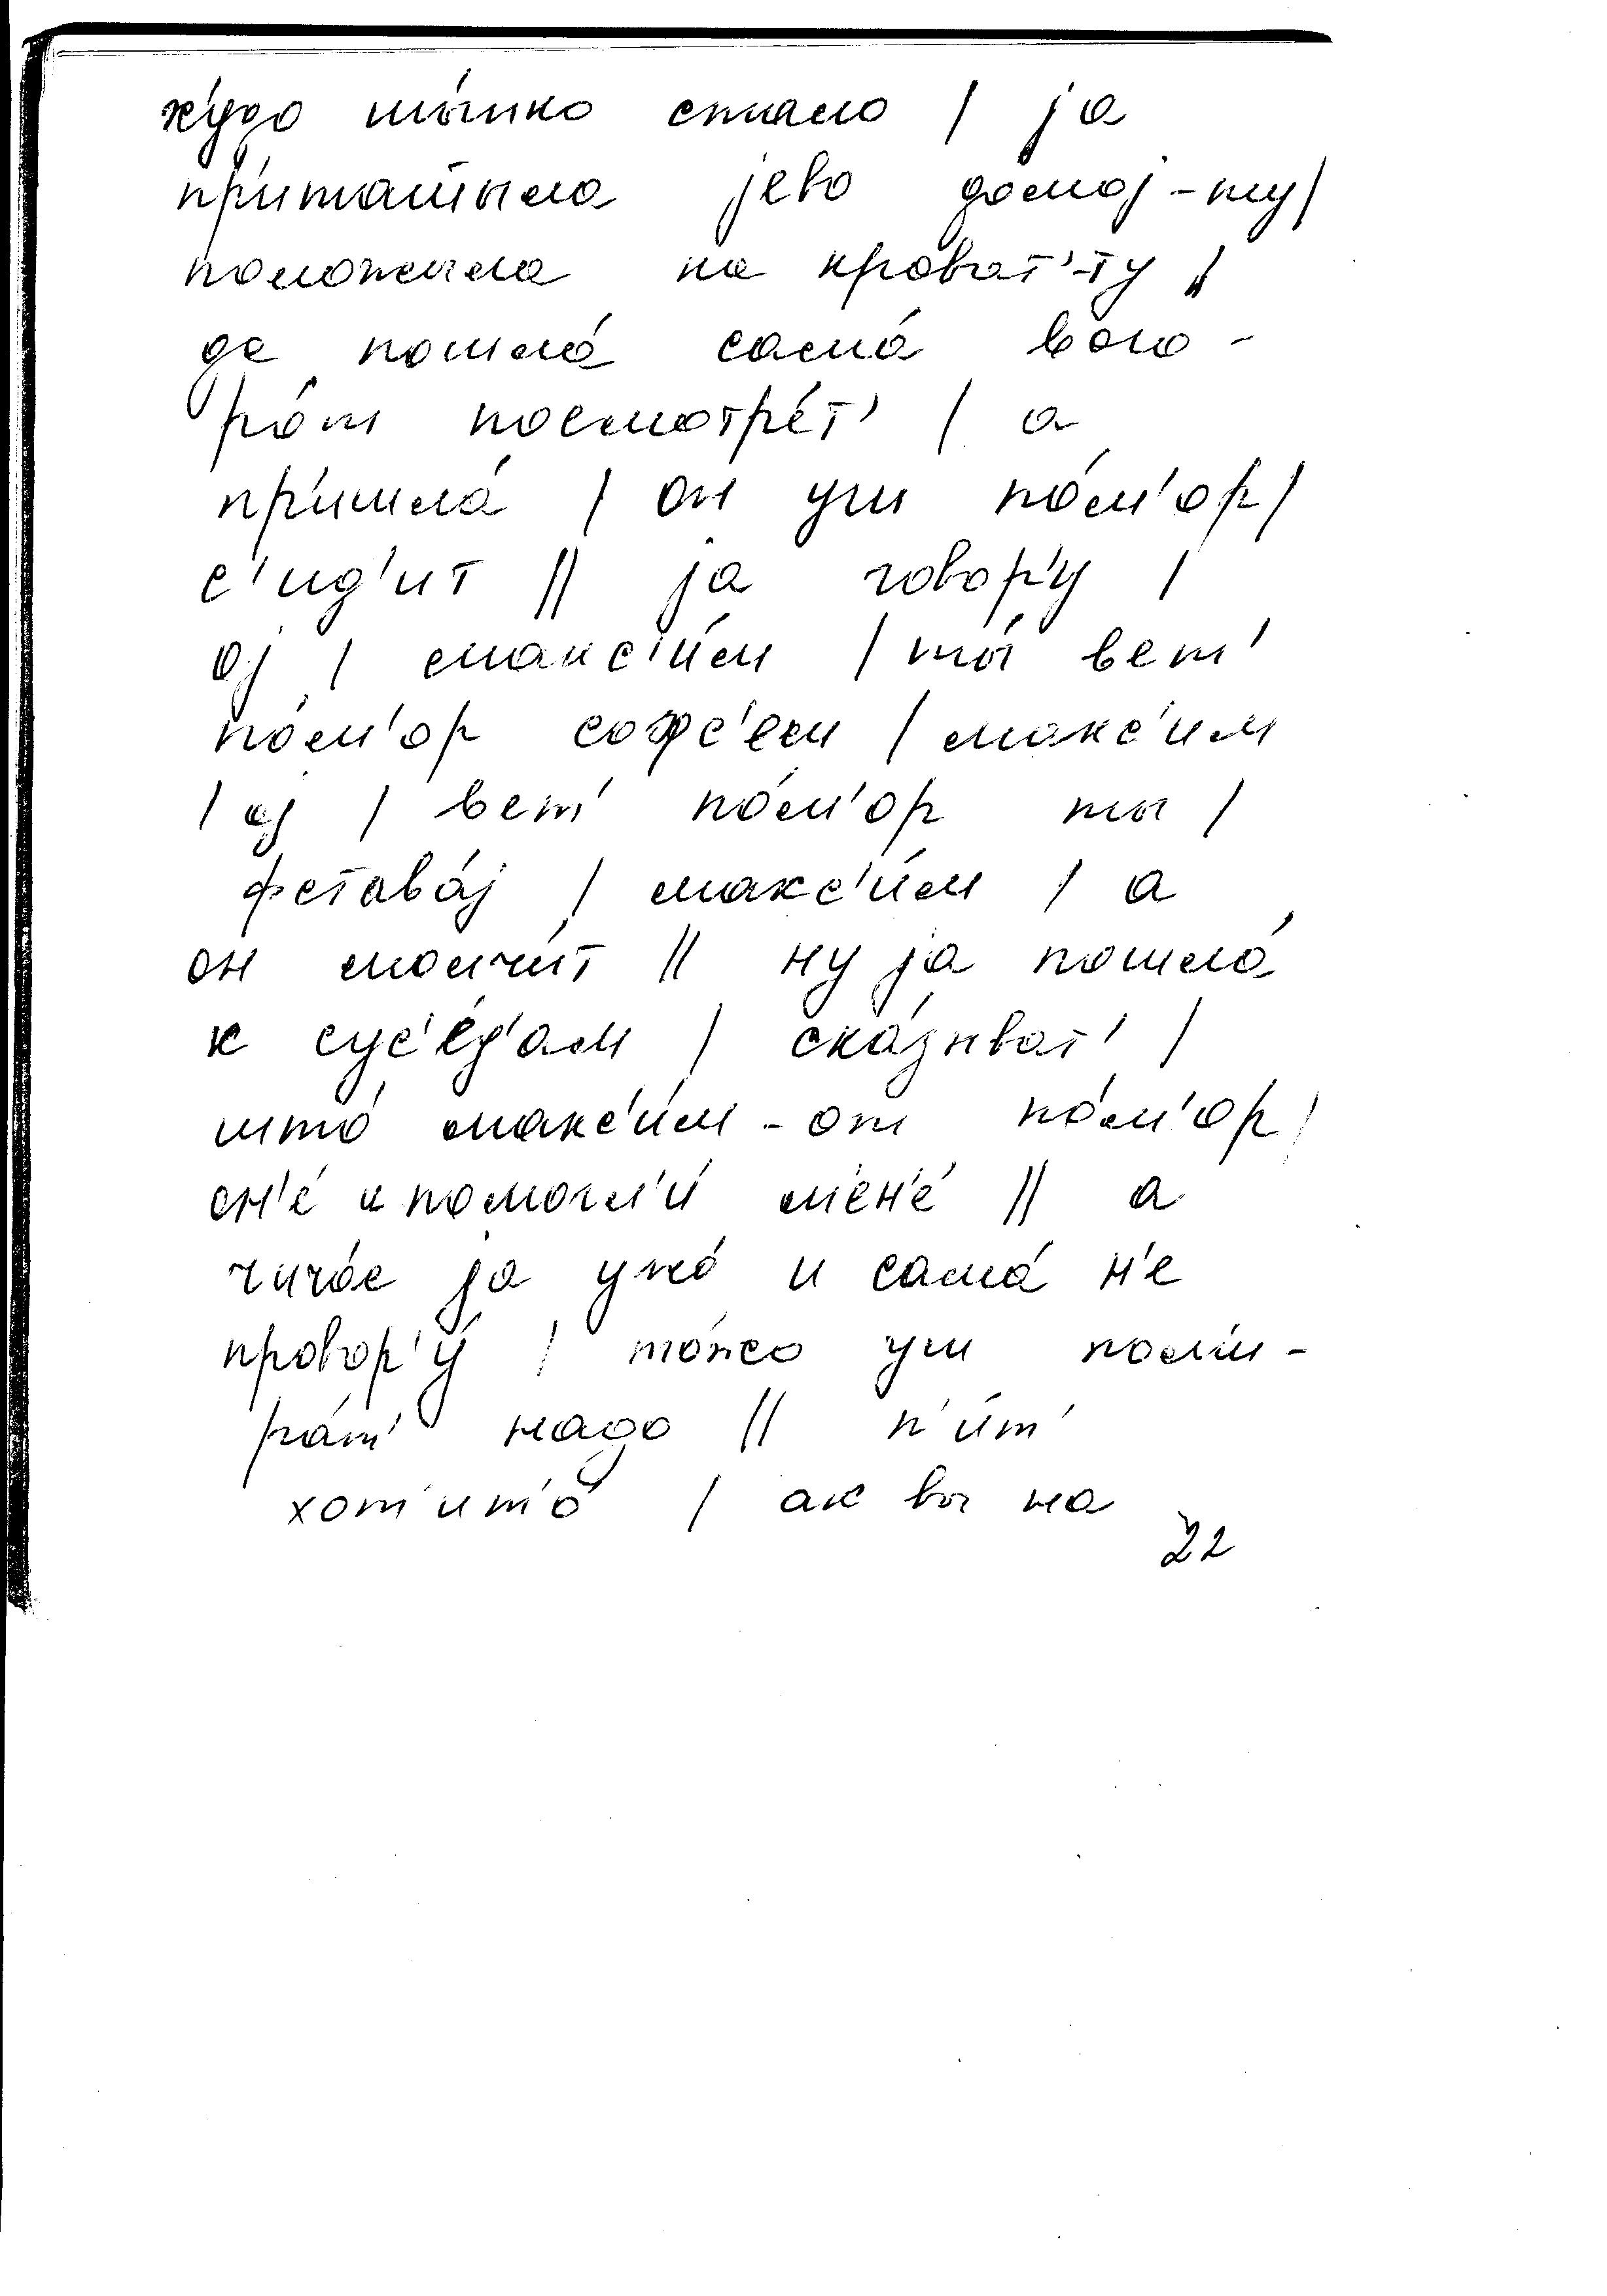 ху́до ты́шко стало / jа
пр'иташшыла jево домоj-ту/
положыла на кроват'-ту /
да пошла́ сама́ воло-
ро́т посмотре́т' / а
пр'ишла́ / он уш по́м'ор /
с'ид'ит // jа говор'у /
оj / макс'и́м / ты́ вет'
по́м'ор софс'ем / макс'им
/ оj / вет' по́м'ор ты /
фставáj / макс'и́м / а
он молчи́т // ну jа пошла́
к сус'е́д'ам / ска́зыват' /
што́ макс'и́м-от по́м'ор /
он'е́ и помогл'и́ м'ен'е́ //  а
чича́с jа ужо́ и сама́ н'е
провор'у́ / то́жо уш пом'и-
ра́т' надо // п'и́т'
хот'ит'о / ак вы на
22